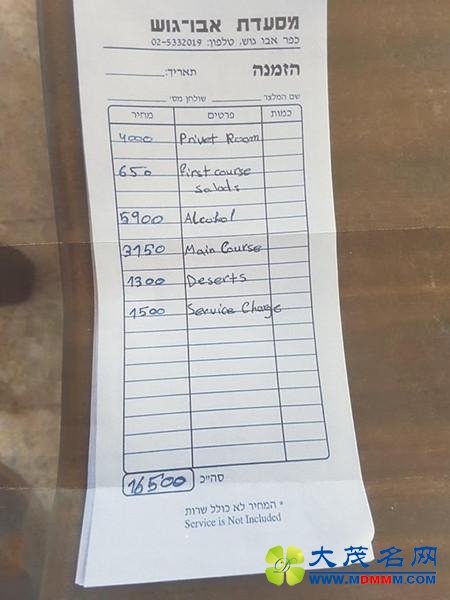 מסעדת אבו-גוש
כפר אבו גוש, טלפון: 02-5332019
הזמנה
תאריך:
שם המלצר שולחן מס׳
כמות פרטים מחיר
Privet Room 4000
First course 650
Salads
Alcohol 5900
Main Course 3150
Deserts 1300
Service Charge 1500
סה״כ 16500
* המחיר לא כולל שרות
Service is Not Included
大茂名网
www.MDMMM.com